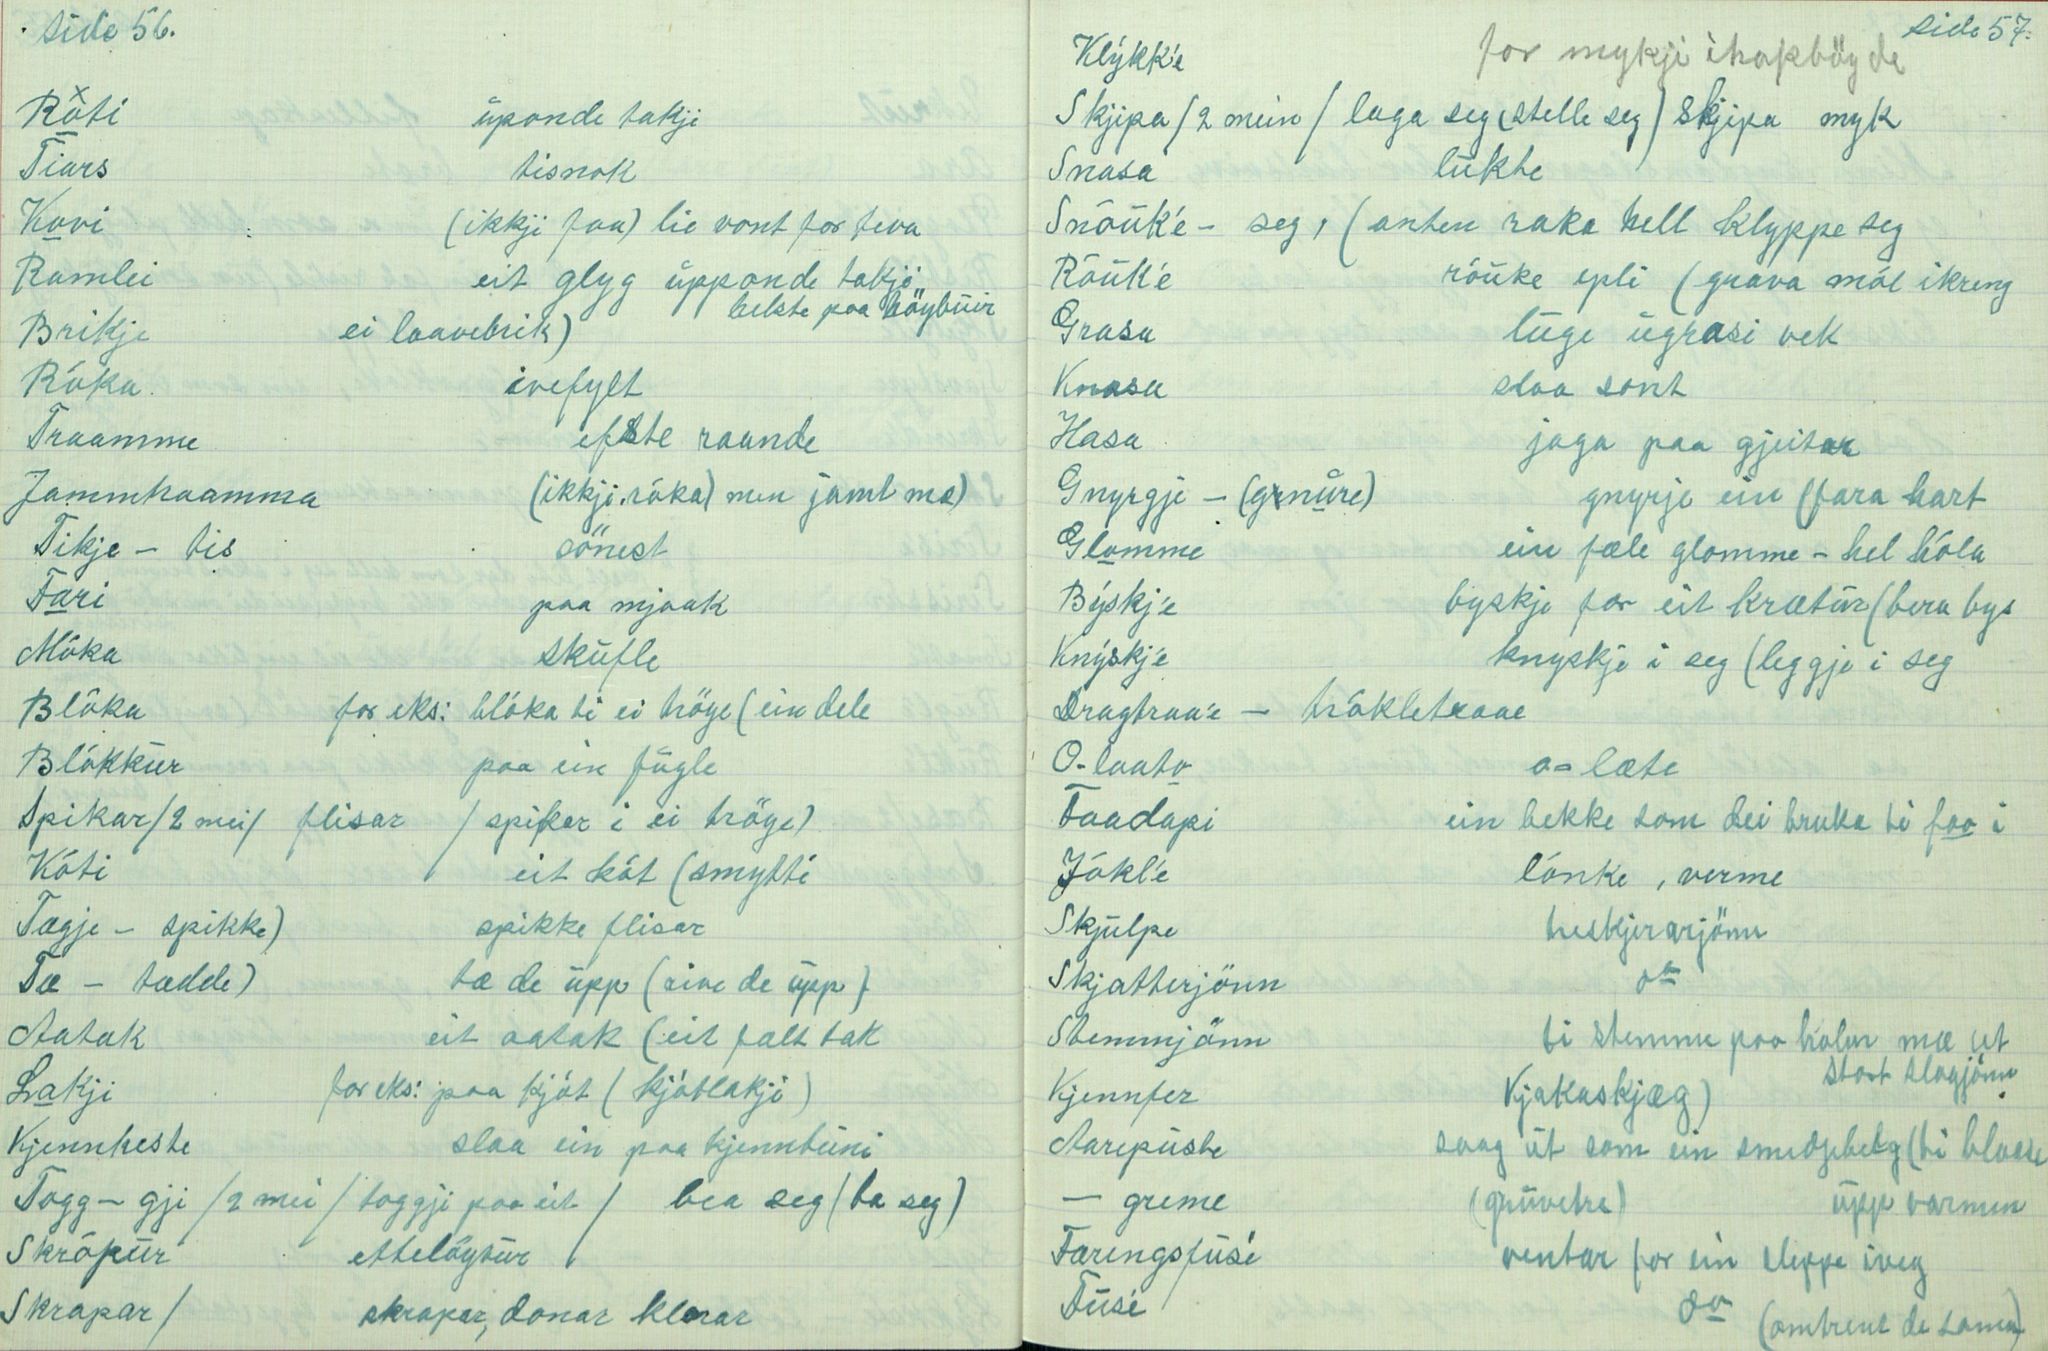 side 56.
Röti üponde takji
Tiars tisnok
Kovi (ikkji faa) lie vont for teva
Ramlei eit glyg üpponde takji
helste paa höybüir
Brikje ei laavebrik)
Róka ivefylt
Traamme efste raande
Jammhaamma (ikkji róka) men jamt mæ)
Tikje – tis sönest
Fari paa mjaak
Móka sküfle
Blóka for eks: blóka ti ei tröge (ein dele
Blókkür paa ein fügle
Spikar / 2 mei / flisar / spikar i ei tröge)
Kóti eit kót (smytti
Tægje – spikke) spikke flisar
Tæ – tædde) tæ de üpp (rive de üpp)
Aatak eit aatak (eit falt tak
Lakji for eks: paa kjót (kjótlakji)
Kjennheste slaa ein paa kjenntüni
Togg – gji / 2 mei / toggji paa eit / bea seg (ba seg)
Skrópür ettelöysür /
Skrapar / skrapar, donar klorar
side 57.
Klýkk'e for mykji ihopböyde
Skjipa / 2 mein / laga seg (stelle seg) skjipa myk
Snasa lükte
Snöük'e – seg, (anten raka hell klyppe seg
Röük'e röüke epli (grava mól ikreng
Grasa lüge ügrasi vek
Knasa slaa sont
Hasa jaga paa gjeitar
Gnyrgje – (gnüre) gnyrje ein (fara hart
Glomme ein fæle glomme – hel hóla
Býskj'e byskje for eit krætür (bera bys
Knýskj'e knyskje i seg (leggje i seg
Dragtraa'e – trókletraae
O-laato o = læte
Faadapi ein bekke som dei bruka ti faa i
Jókl'e lónke, verme
Skjülpe heskjerarjönn
Skjatterjönn do
Stemmjönn ti stemme paa hólar mæ et
stort slagjönn
Kjennfer Kjakaskjæg)
Aarepüste saag üt som ein smedjebelg (ti blaase
— greme (grüvetre) üpp varmen
Færingsfüsé ventar for ein sleppe iveg
Füsé do (omtrent de sama)